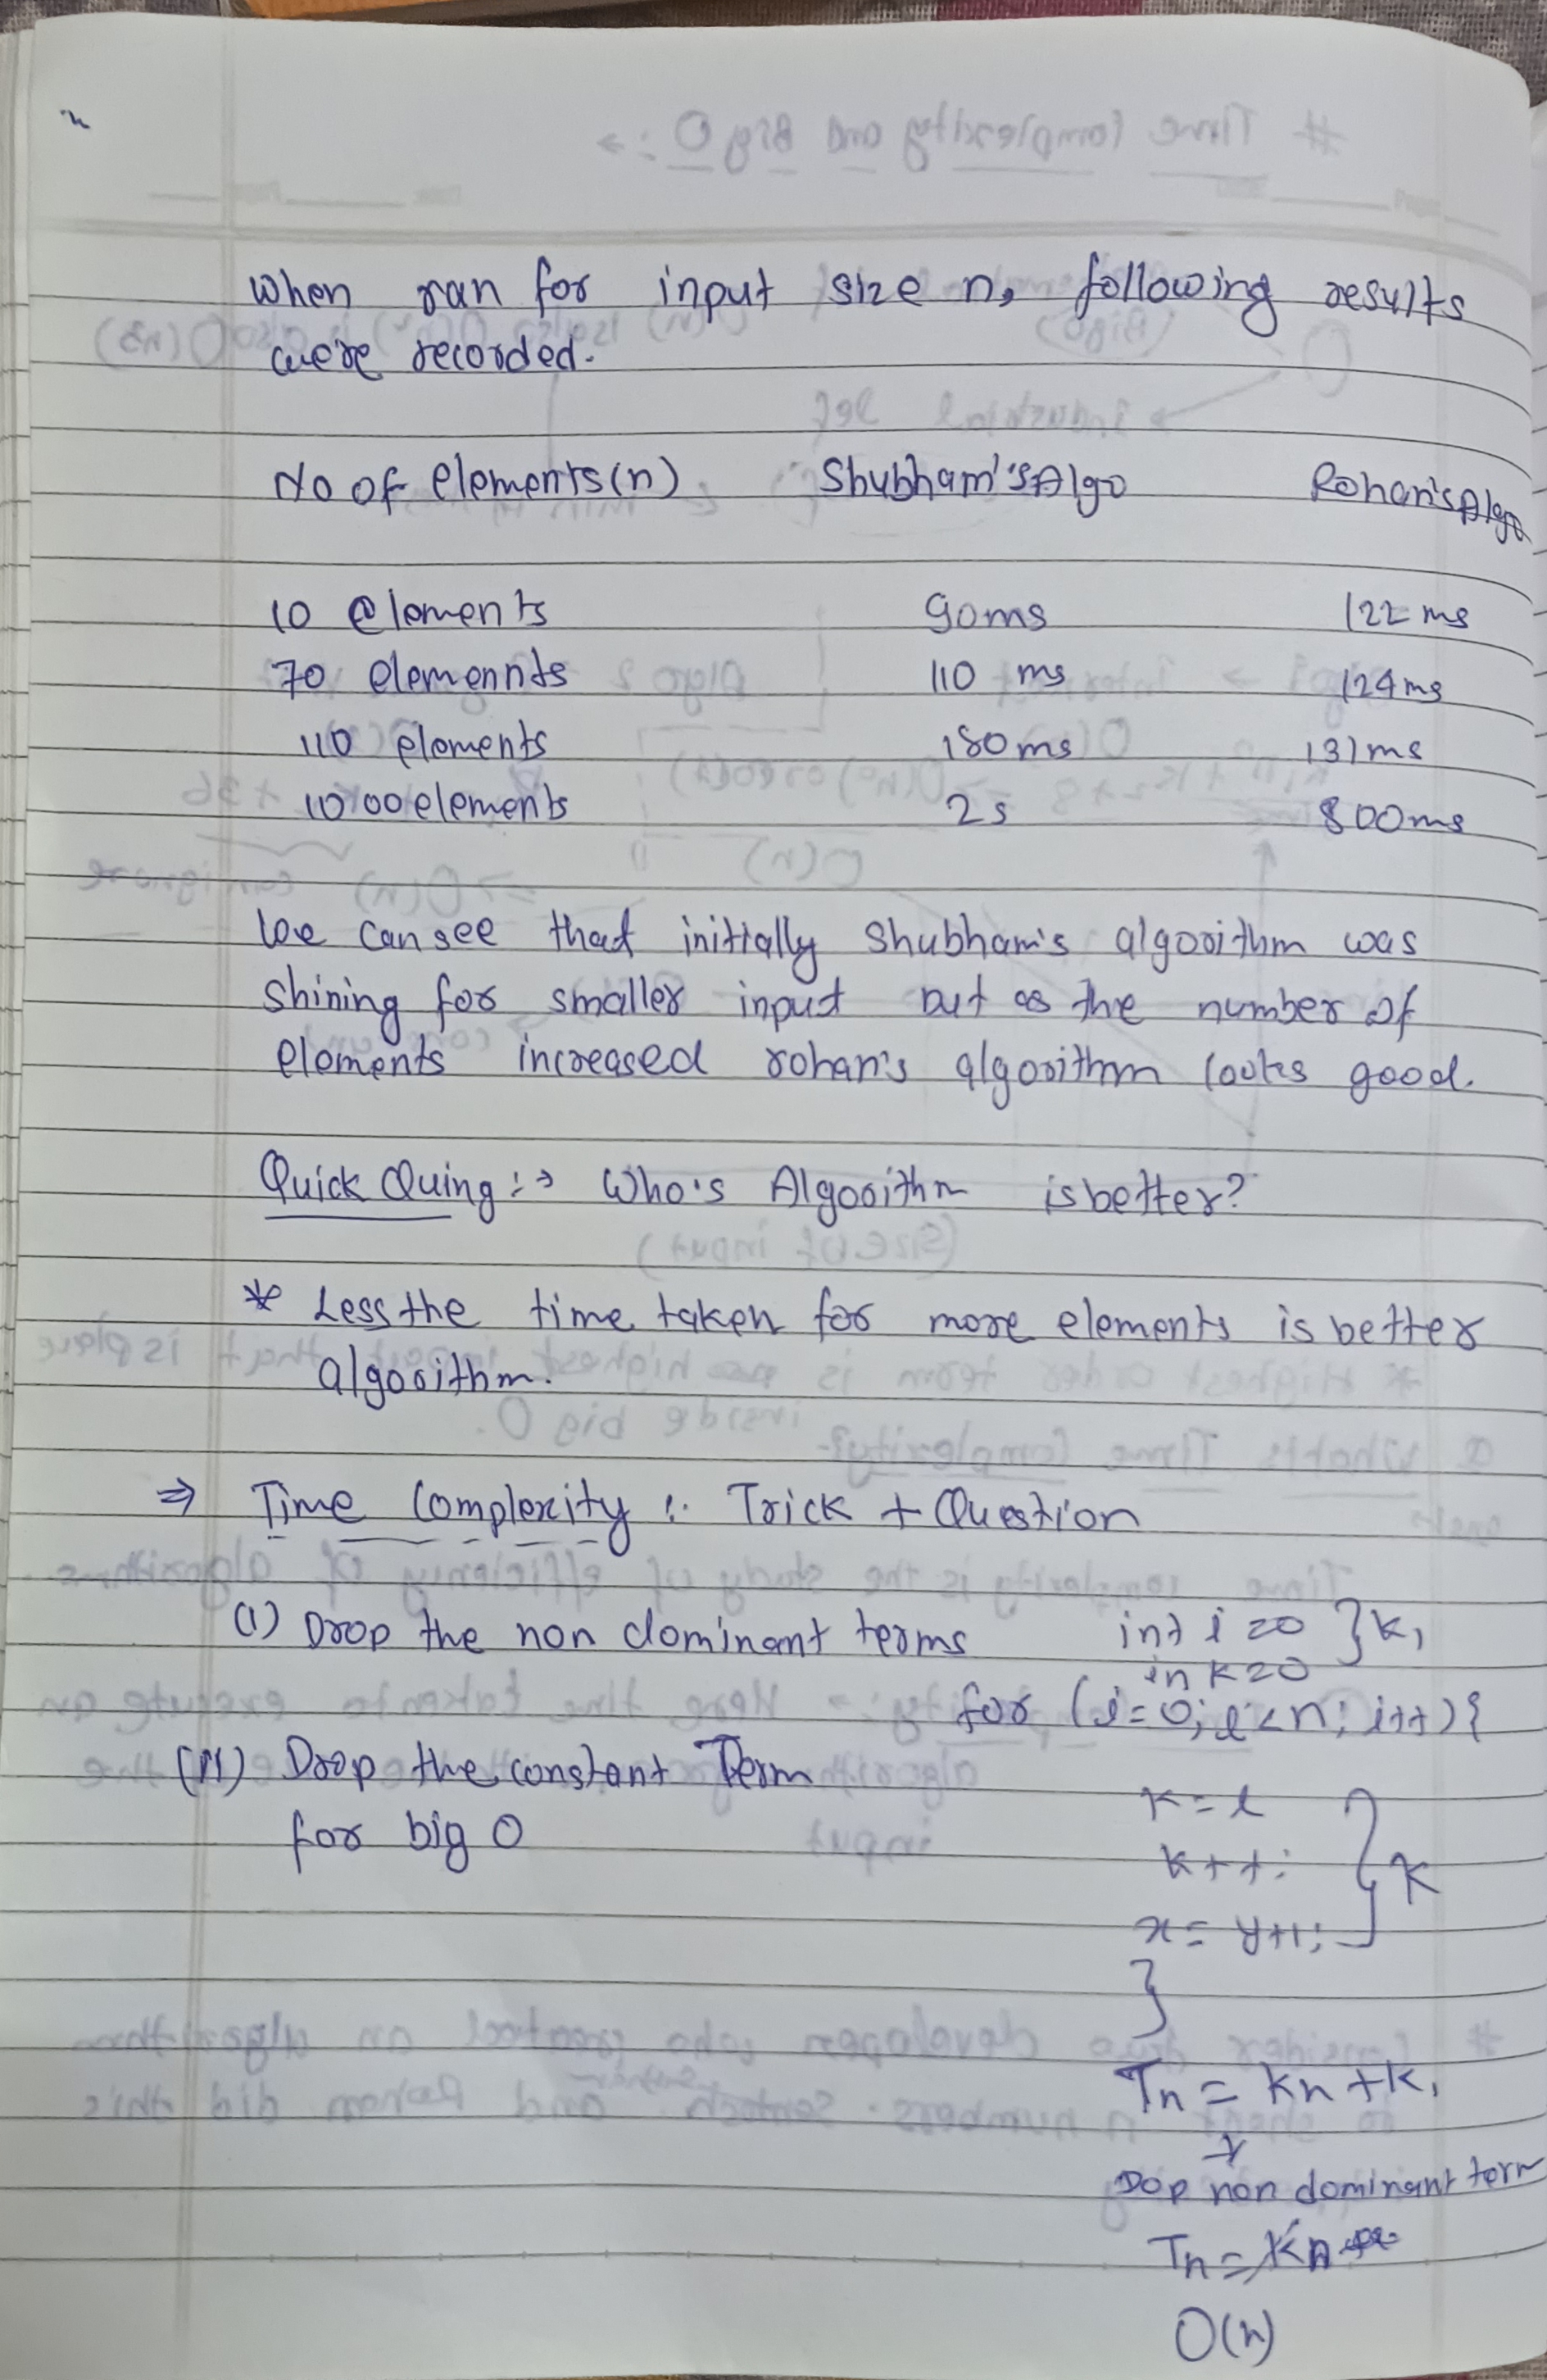 When ran for input size n, following results
were recorded.
No of elements(n) Shubham's Algo Rohan's Algo
10 elements 90ms 122 ms
70 elemennts 110 ms 124ms
110 elements 180ms 131ms
1000 elements 2s 800ms
We can see that initially Shubham's algorithm was
shining for smaller input but as the number of
elements increased rohan's algorithm looks good.
Quick Quing :→ Who's Algorithm is better?
* Less the time taken for more elements is better
algorithm.
⇒ Time Complexity :. Trick + Question
(I) Drop the non dominant terms
int i = 0 } k1
in k=0
for (i=0; i<n; i++){
(II) Drop the constant Term
for big O
k=i
k++;
x = y+1;
} k
}
Tn = kn + k1
↓
Dop non dominant term
Tn = kn
O(n)